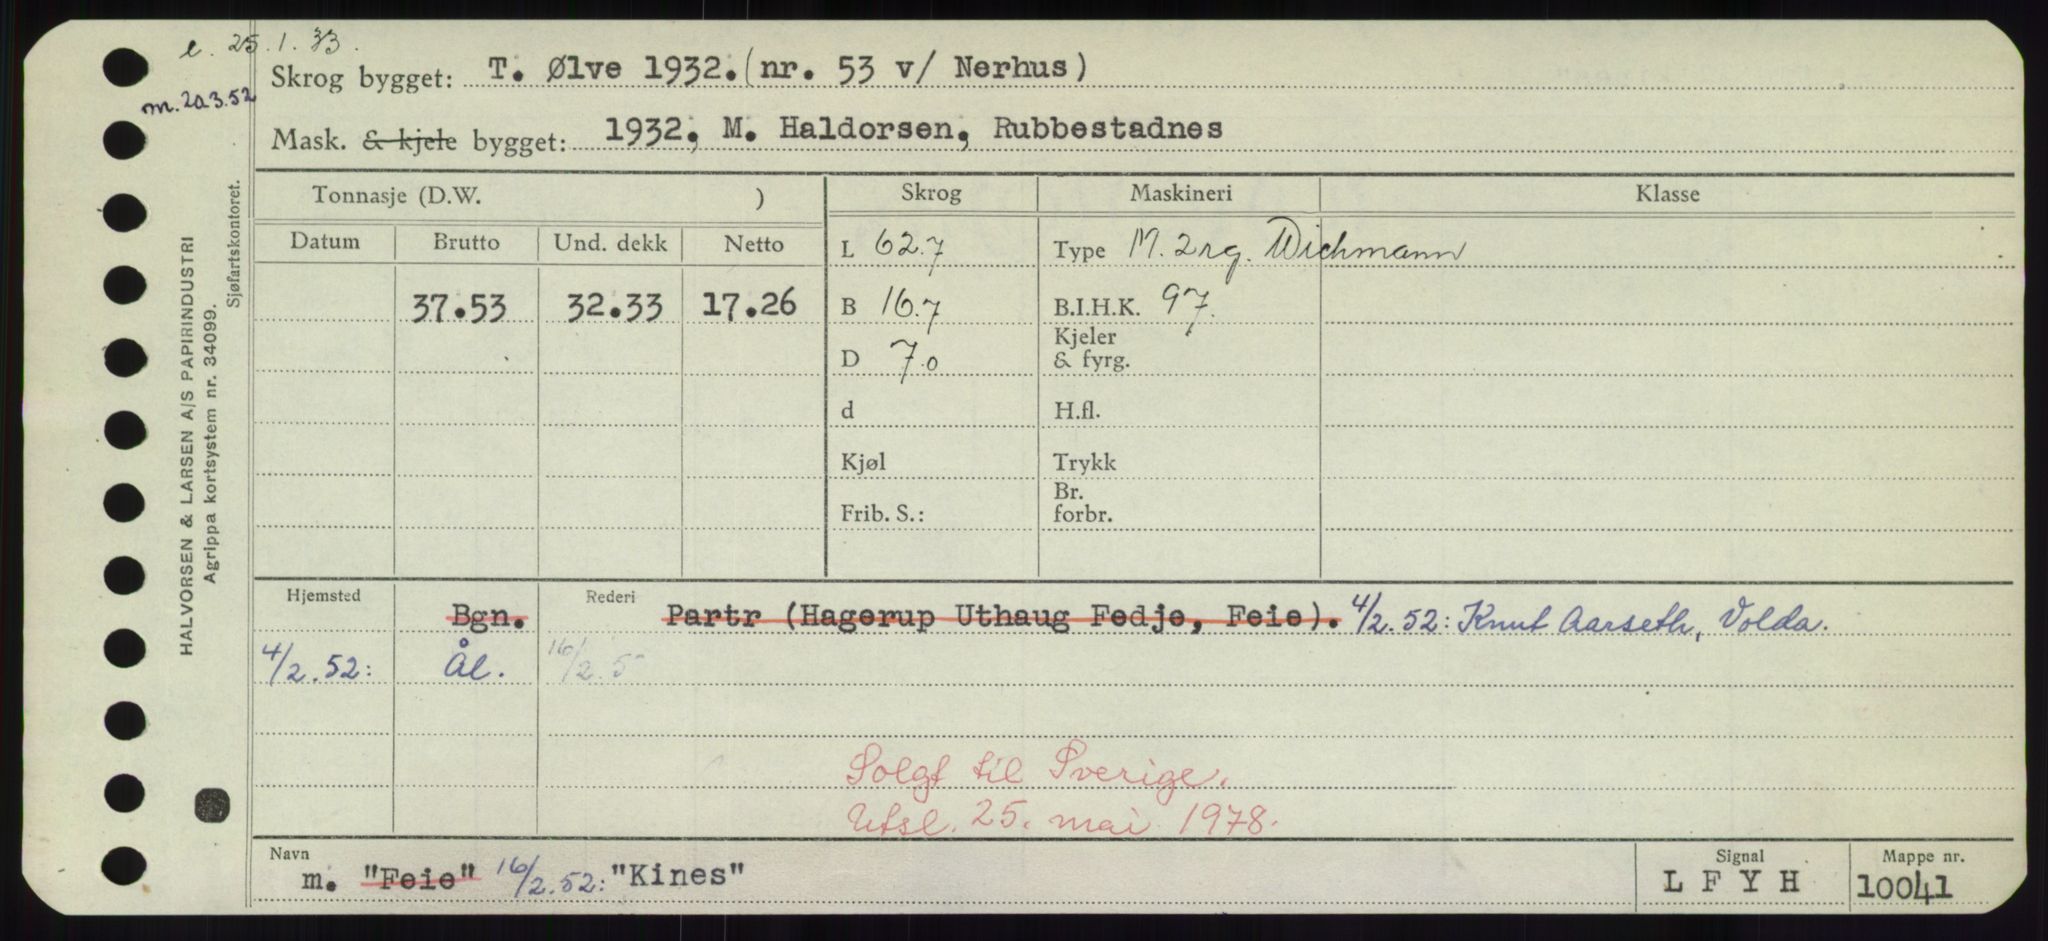 e. 25.1.33.
Skrog bygget: T. Ølve 1932. (nr. 53 v/ Nerhus)
m. 20.3.52
Mask. & kjele bygget: 1932, M. Haldorsen, Rubbestadnes
HALVORSEN & LARSEN A/S PAPIRINDUSTRI
Agrippa kortsystem nr. 34099.
Sjøfartskontoret.
Tonnasje (D.W. ) Skrog Maskineri Klasse
Datum Brutto Und. dekk Netto L 62.7 Type M. 2 rg. Wichmann
37.53 32.33 17.26 B 16.7 B.I.H.K. 97.
D 7.0 Kjeler & fyrg.
d H.fl.
Kjøl Trykk
Frib. S.: Br. forbr.
Hjemsted Bgn. Rederi Partr (Hagerup Uthaug Fedje, Feie). 4/2.52: Knut Aarseth, Volda.
4/2.52: Ål. 16/2.5
Solgt til Sverige.
Utsl. 25. mai 1978.
Navn Signal Mappe nr.
m. "Feie" 16/2.52: "Kines" L F Y H 10041